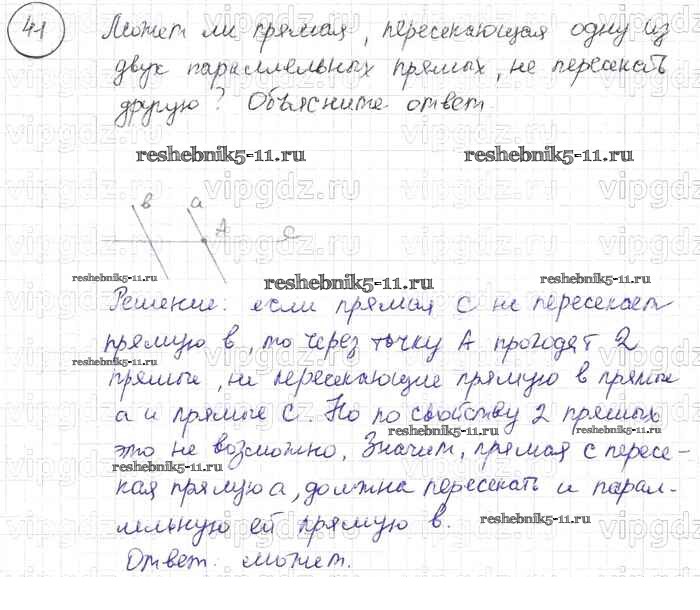 41 Может ли прямая, пересекающая одну из
двух параллельных прямых, не пересекать
другую? Объясните ответ.
reshebnik5-11.ru reshebnik5-11.ru
в а
А
с
reshebnik5-11.ru reshebnik5-11.ru reshebnik5-11.ru
Решение: если прямая с не пересекает
прямую в, то через точку А проходят 2
reshebnik5-11.ru
прямые, не пересекающие прямую в прямые
а и прямые с. Но по свойству 2 прямых
это не возможно, Значит, прямая с пересе-
reshebnik5-11.ru
кая прямую а, должна пересекать и парал-
лельную ей прямую в.
reshebnik5-11.ru
Ответ: может.
vipgdz.ru